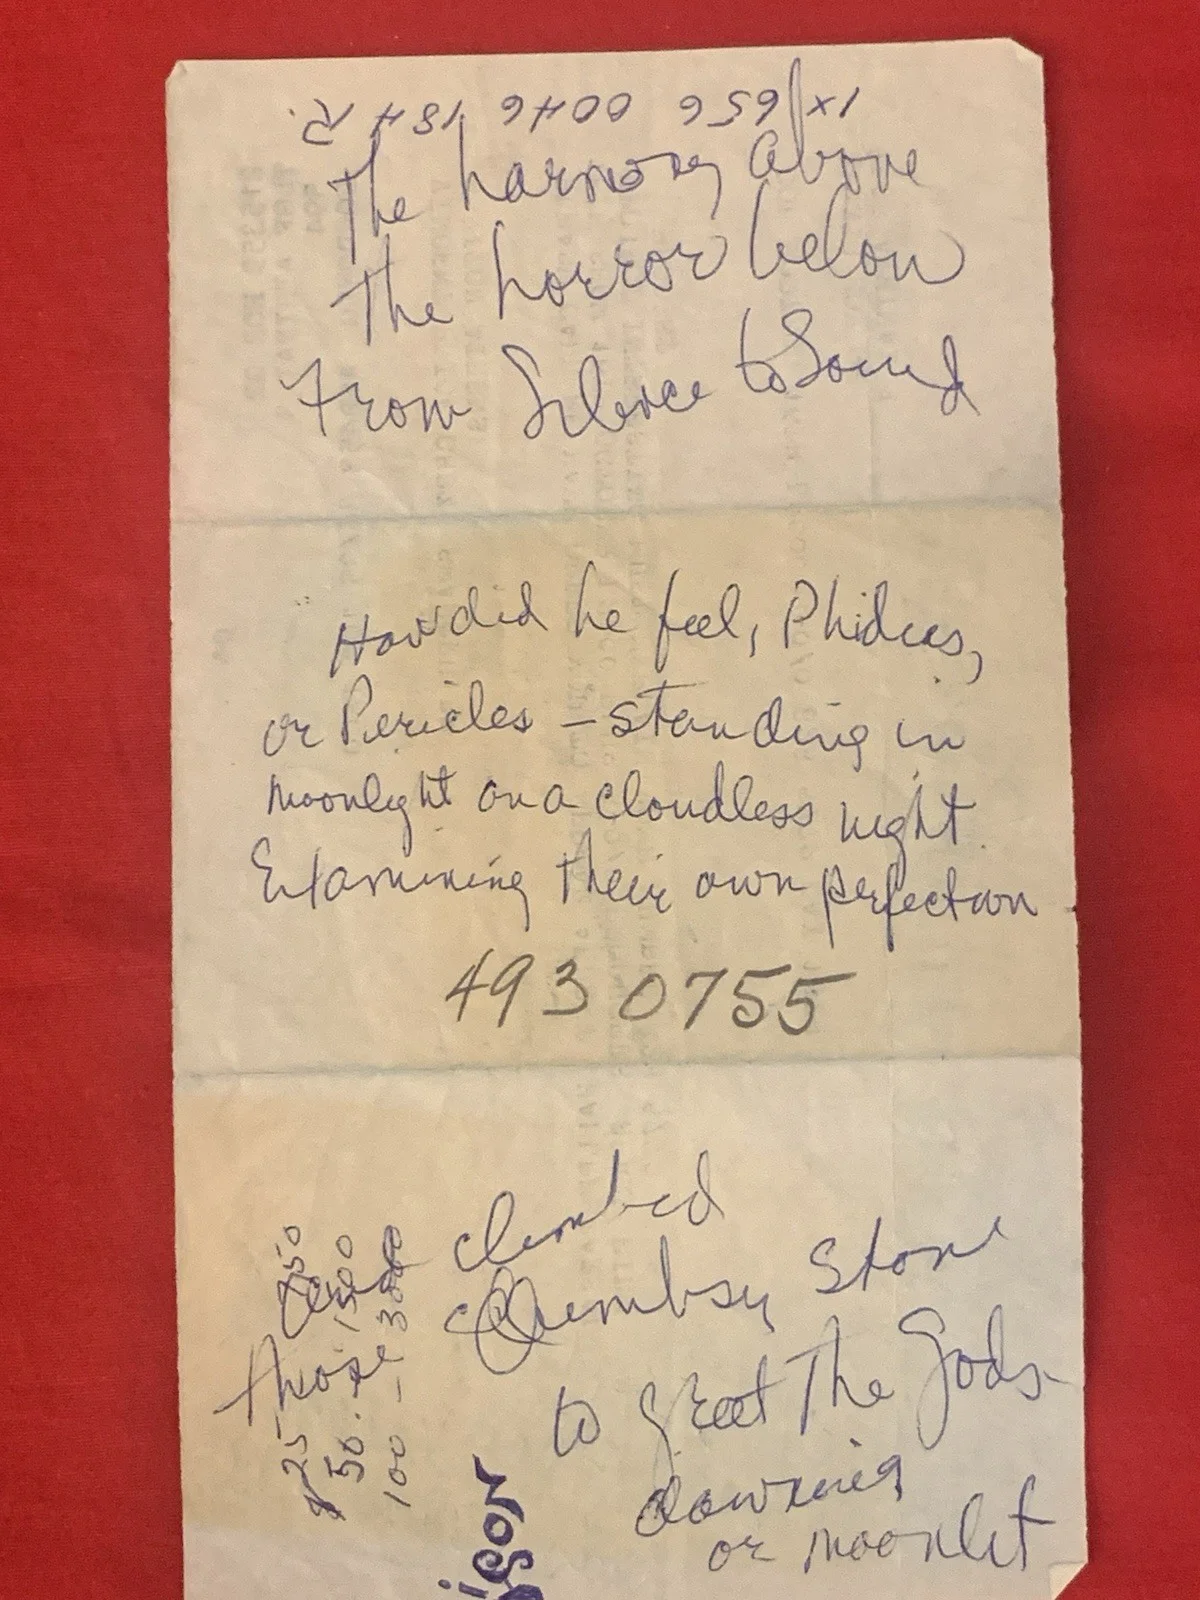 1x 656 0046 184 R.
The harmony above
The horror below
From Silence to Sound
How did he feel, Phidias,
or Pericles – standing in
moonlight on a cloudless night
Examining their own perfection
493 0755
and climbed
those Clumbsy Stone
to greet The Gods
downing
or moonlit
$25
50.
100 –